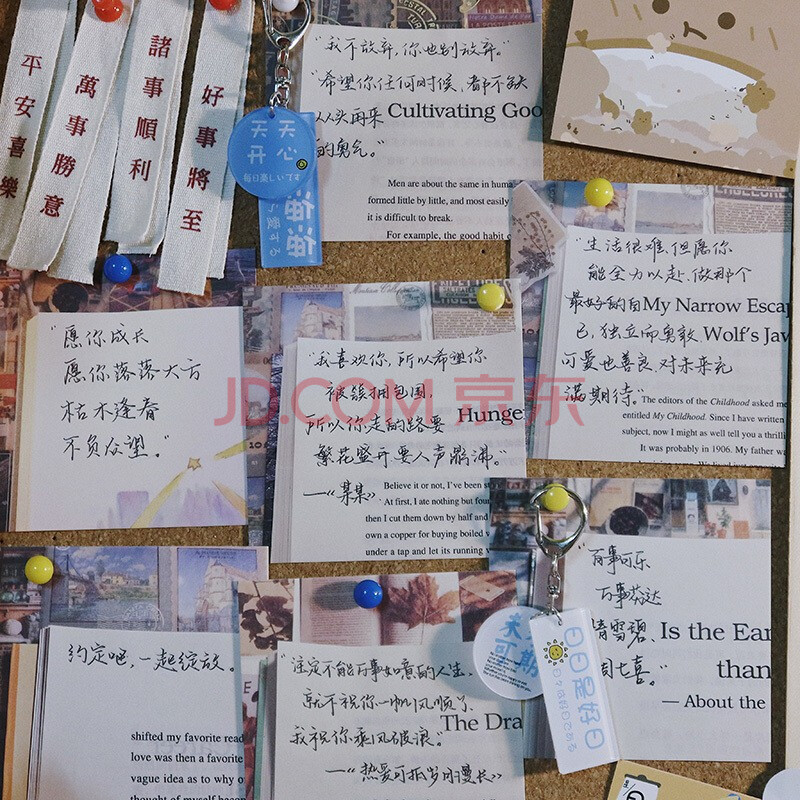 平安喜樂
萬事勝意
諸事順利
好事將至
天天
开心
每日楽しいです
"我不放弃，你也别放弃。"
"希望你任何时候，都不缺
从头再来
的勇气。"
Cultivating Goo
Men are about the same in huma
formed little by little, and most easily
it is difficult to break.
For example, the good habit
"愿你成长
愿你落落大方
枯木逢春
不负众望。"
"我喜欢你，所以希望你
被簇拥包围，
所以你走的路要
繁花盛开要人声鼎沸。"
—《某某》
Hunge
Believe it or not, I've been
At first, I ate nothing but four
then I cut them down by half and
own a copper for buying boiled
under a tap and let its running
"生活很难，但愿你
能全力以赴，做那个
最好的自
己，独立而勇敢，
可爱也善良，对未来充
满期待。"
My Narrow Escap
Wolf's Jaw
The editors of the Childhood asked me
entitled My Childhood. Since I have written
subject, now I might as well tell you a thrilli
It was probably in 1906. My father wa
JD.COM 京东
约定吧，一起绽放。
shifted my favorite read
love was then a favorite
vague idea as to why
thought of myself
"注定不能万事如意的人生，
就不祝你一帆风顺了
我祝你乘风破浪。"
—《热爱可抵岁月漫长》
The Dra
未来
可期
日日是好日
"百事可乐
万事芬达
晴雪碧、
周七喜。"
Is the Ear
than
— About the